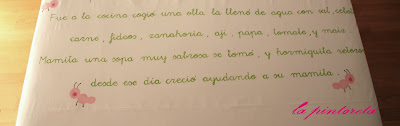 Fue a la cocina cogió una olla la llenó de agua con sal,
carne, fideos, zanahoria, aji, papa, tomate, y mais.
Mamita una sopa muy sabrosa se tomó, y hormiguita
desde ese día creció ayudando a su mamita.
la pintoreta